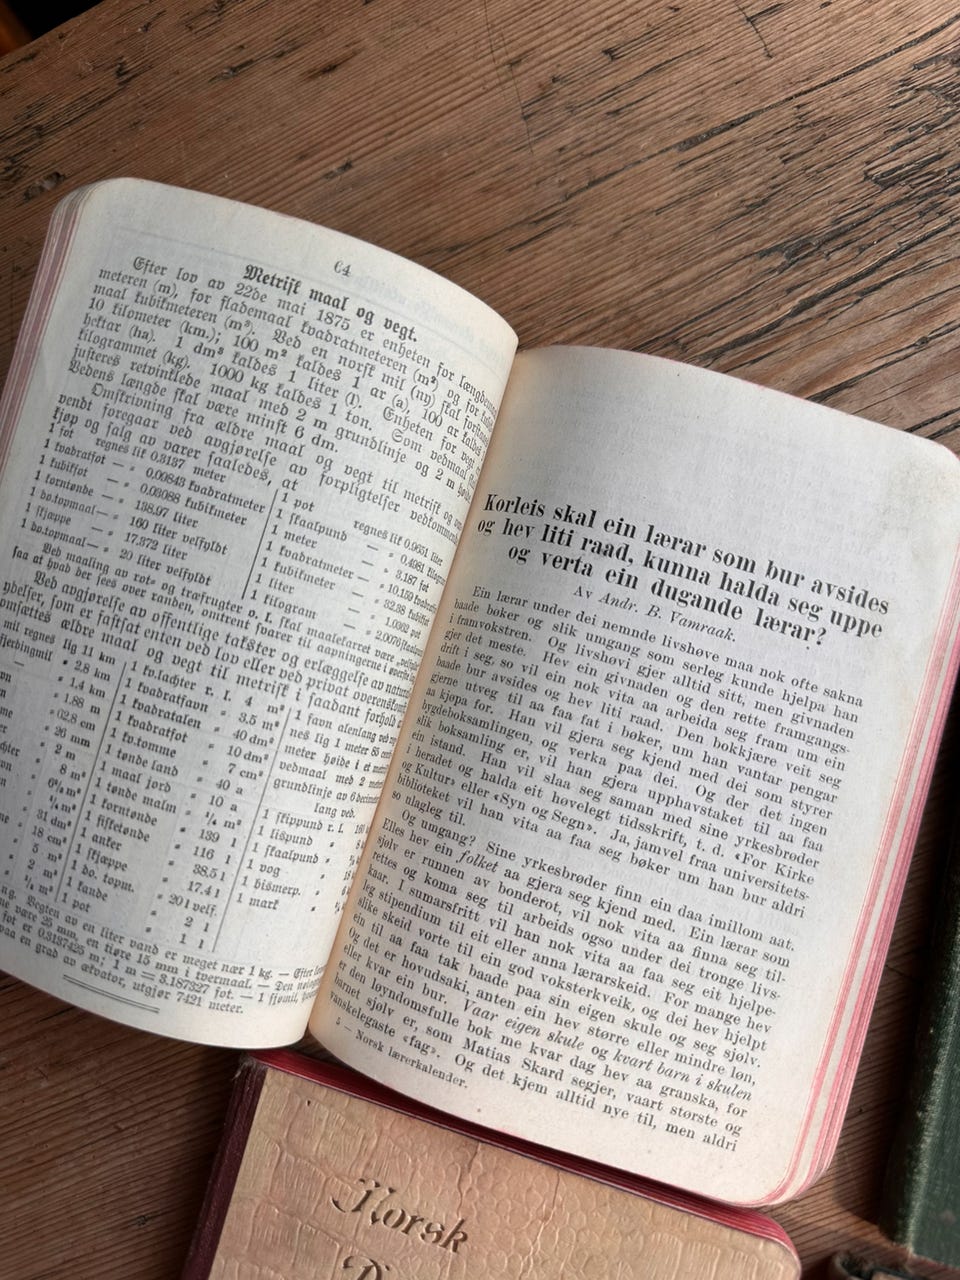 64
Metrisk maal og vegt.
Efter lov av 22de mai 1875 er enheten for længdemaal
meteren (m), for flademaal kvadratmeteren (m²) og for
maal kubikmeteren (m³). Ved en norsk mil (ny) skal forstaaes
10 kilometer (km.); 100 m² kaldes 1 ar (a), 100 ar kaldes
hektar (ha). 1 dm³ kaldes 1 liter (l). Enheten for vegt
kilogrammet (kg). 1000 kg kaldes 1 ton. Som vedmaal
justeres retvinklede maal med 2 m grundlinje og 2 m høide.
Vedens længde skal være minst 6 dm.
Omskrivning fra ældre maal og vegt til metrisk og
vendt foregaar ved avgjørelse av forpligtelser vedkommende
kjøp og salg av varer saaledes, at
1 fot regnes lik 0.3137 meter
1 kvadratfot — „ 0.09843 kvadratmeter
1 kubikfot — „ 0.03088 kubikmeter
1 korntønde — „ 138.97 liter
1 do. topmaal — „ 160 liter velfyldt
1 skjæppe — „ 17.372 liter
1 do. topmaal — „ 20 liter velfyldt
1 pot regnes lik 0.9651 liter
1 skaalpund — „ 0.4981
1 meter — „ 3.187 fot
1 kvadratmeter — „ 10.159
1 kubikmeter — „ 32.38 kubikfot
1 liter — „ 1.0362 pot
1 kilogram — „ 2.0076
Ved maaling av rot- og træfrugter o. l. skal maalekarret være
saa at hvad der sees over randen, omtrent svarer til aapningerne
Ved avgjørelse av offentlige takster og erlæggelse av
ydelser, som er fastsat enten ved lov eller ved privat overenskomst,
omsættes ældre maal og vegt til metrisk i saadant forhold
mil regnes lig 11 km
fjerdingmil „ 2.8 km
„ 1.4 km
„ 1.88 m
„ 62.8 cm
„ 26 mm
„ 2 m
„ 8 m³
„ 31 dm³
„ 18 cm³
„ 5 m
„ 2 m
1 kv.lachter r. l. 4 m²
1 kvadratfavn „ 3.5 m²
1 kvadratalen „ 40 dm²
1 kvadratfot „ 10 dm²
1 kv.tomme „ 7 cm²
1 tønde land „ 40 a
1 maal jord „ 10 a
1 tønde malm „ ¼ m³
1 korntønde „ 139 l
1 fisketønde „ 116 l
1 anker „ 38.5 l
1 skjæppe „ 17.4 l
1 do. topm. „ 20 l velf.
1 kande „ 2 l
1 pot „ 1 l
1 favn alenlang ved
nes lig 1 meter 85
meter høide i et
vedmaal med 2
grundlinje av 6
lang ved.
1 skippund r. l.
1 lispund „
1 skaalpund „
1 vog „
1 bismerp. „
1 mark „
Vegten av en liter vand er meget nær 1 kg. — Efter
være 25 mm, en tiøre 15 mm i tvermaal. — Den
fot er 0.3137425 m; 1 m = 3.187327 fot. — 1 sjømil,
paa en grad av ækvator, utgjør 7421 meter.
Korleis skal ein lærar som bur avsides
og hev liti raad, kunna halda seg uppe
og verta ein dugande lærar?
Av Andr. B. Vamraak.
Ein lærar under dei nemnde livshøve maa nok ofte sakna
baade bøker og slik umgang som serleg kunde hjelpa han
i framvokstren. Og livshøvi gjer alltid sitt, men givnaden
gjer det meste. Hev ein givnaden og den rette framgangs-
drift i seg, so vil ein nok vita aa arbeida seg fram um ein
baade bur avsides og hev liti raad. Den bokkjære veit seg
gjerne utveg til aa faa fat i bøker, um han vantar pengar
aa kjøpa for. Han vil gjera seg kjend med dei som styrer
bygdeboksamlingen, og verka paa dei. Og der det ingen
slik boksamling er, vil han gjera upphavstaket til aa faa
ein istand. Han vil slaa seg saman med sine yrkesbrøder
i heradet og halda eit hovelegt tidsskrift, t. d. «For Kirke
og Kultur» eller «Syn og Segn». Ja, jamvel fraa universitets-
biblioteket vil han vita aa faa seg bøker um han bur aldri
so ulagleg til.
Og umgang? Sine yrkesbrøder finn ein daa imillom aat.
Elles hev ein folket aa gjera seg kjend med. Ein lærar som
sjølv er runnen av bonderot, vil nok vita aa finna seg til-
rettes og koma seg til arbeids ogso under dei tronge livs-
kaar. I sumarsfritt vil han nok vita aa faa seg eit hjelpe-
leg stipendium til eit eller anna lærarskeid. For mange hev
slike skeid vorte til ein god voksterkveik, og dei hev hjelpt
ein til aa faa tak baade paa sin eigen skule og seg sjølv.
Og det er hovudsaki, anten ein hev større eller mindre løn,
eller kvar ein bur. Vaar eigen skule og kvart barn i skulen
er den løyndomsfulle bok me kvar dag hev aa granska, for
barnet sjølv er, som Matias Skard segjer, vaart største og
vanskelegaste «fag». Og det kjem alltid nye til, men aldri
5 — Norsk lærerkalender.
Norsk